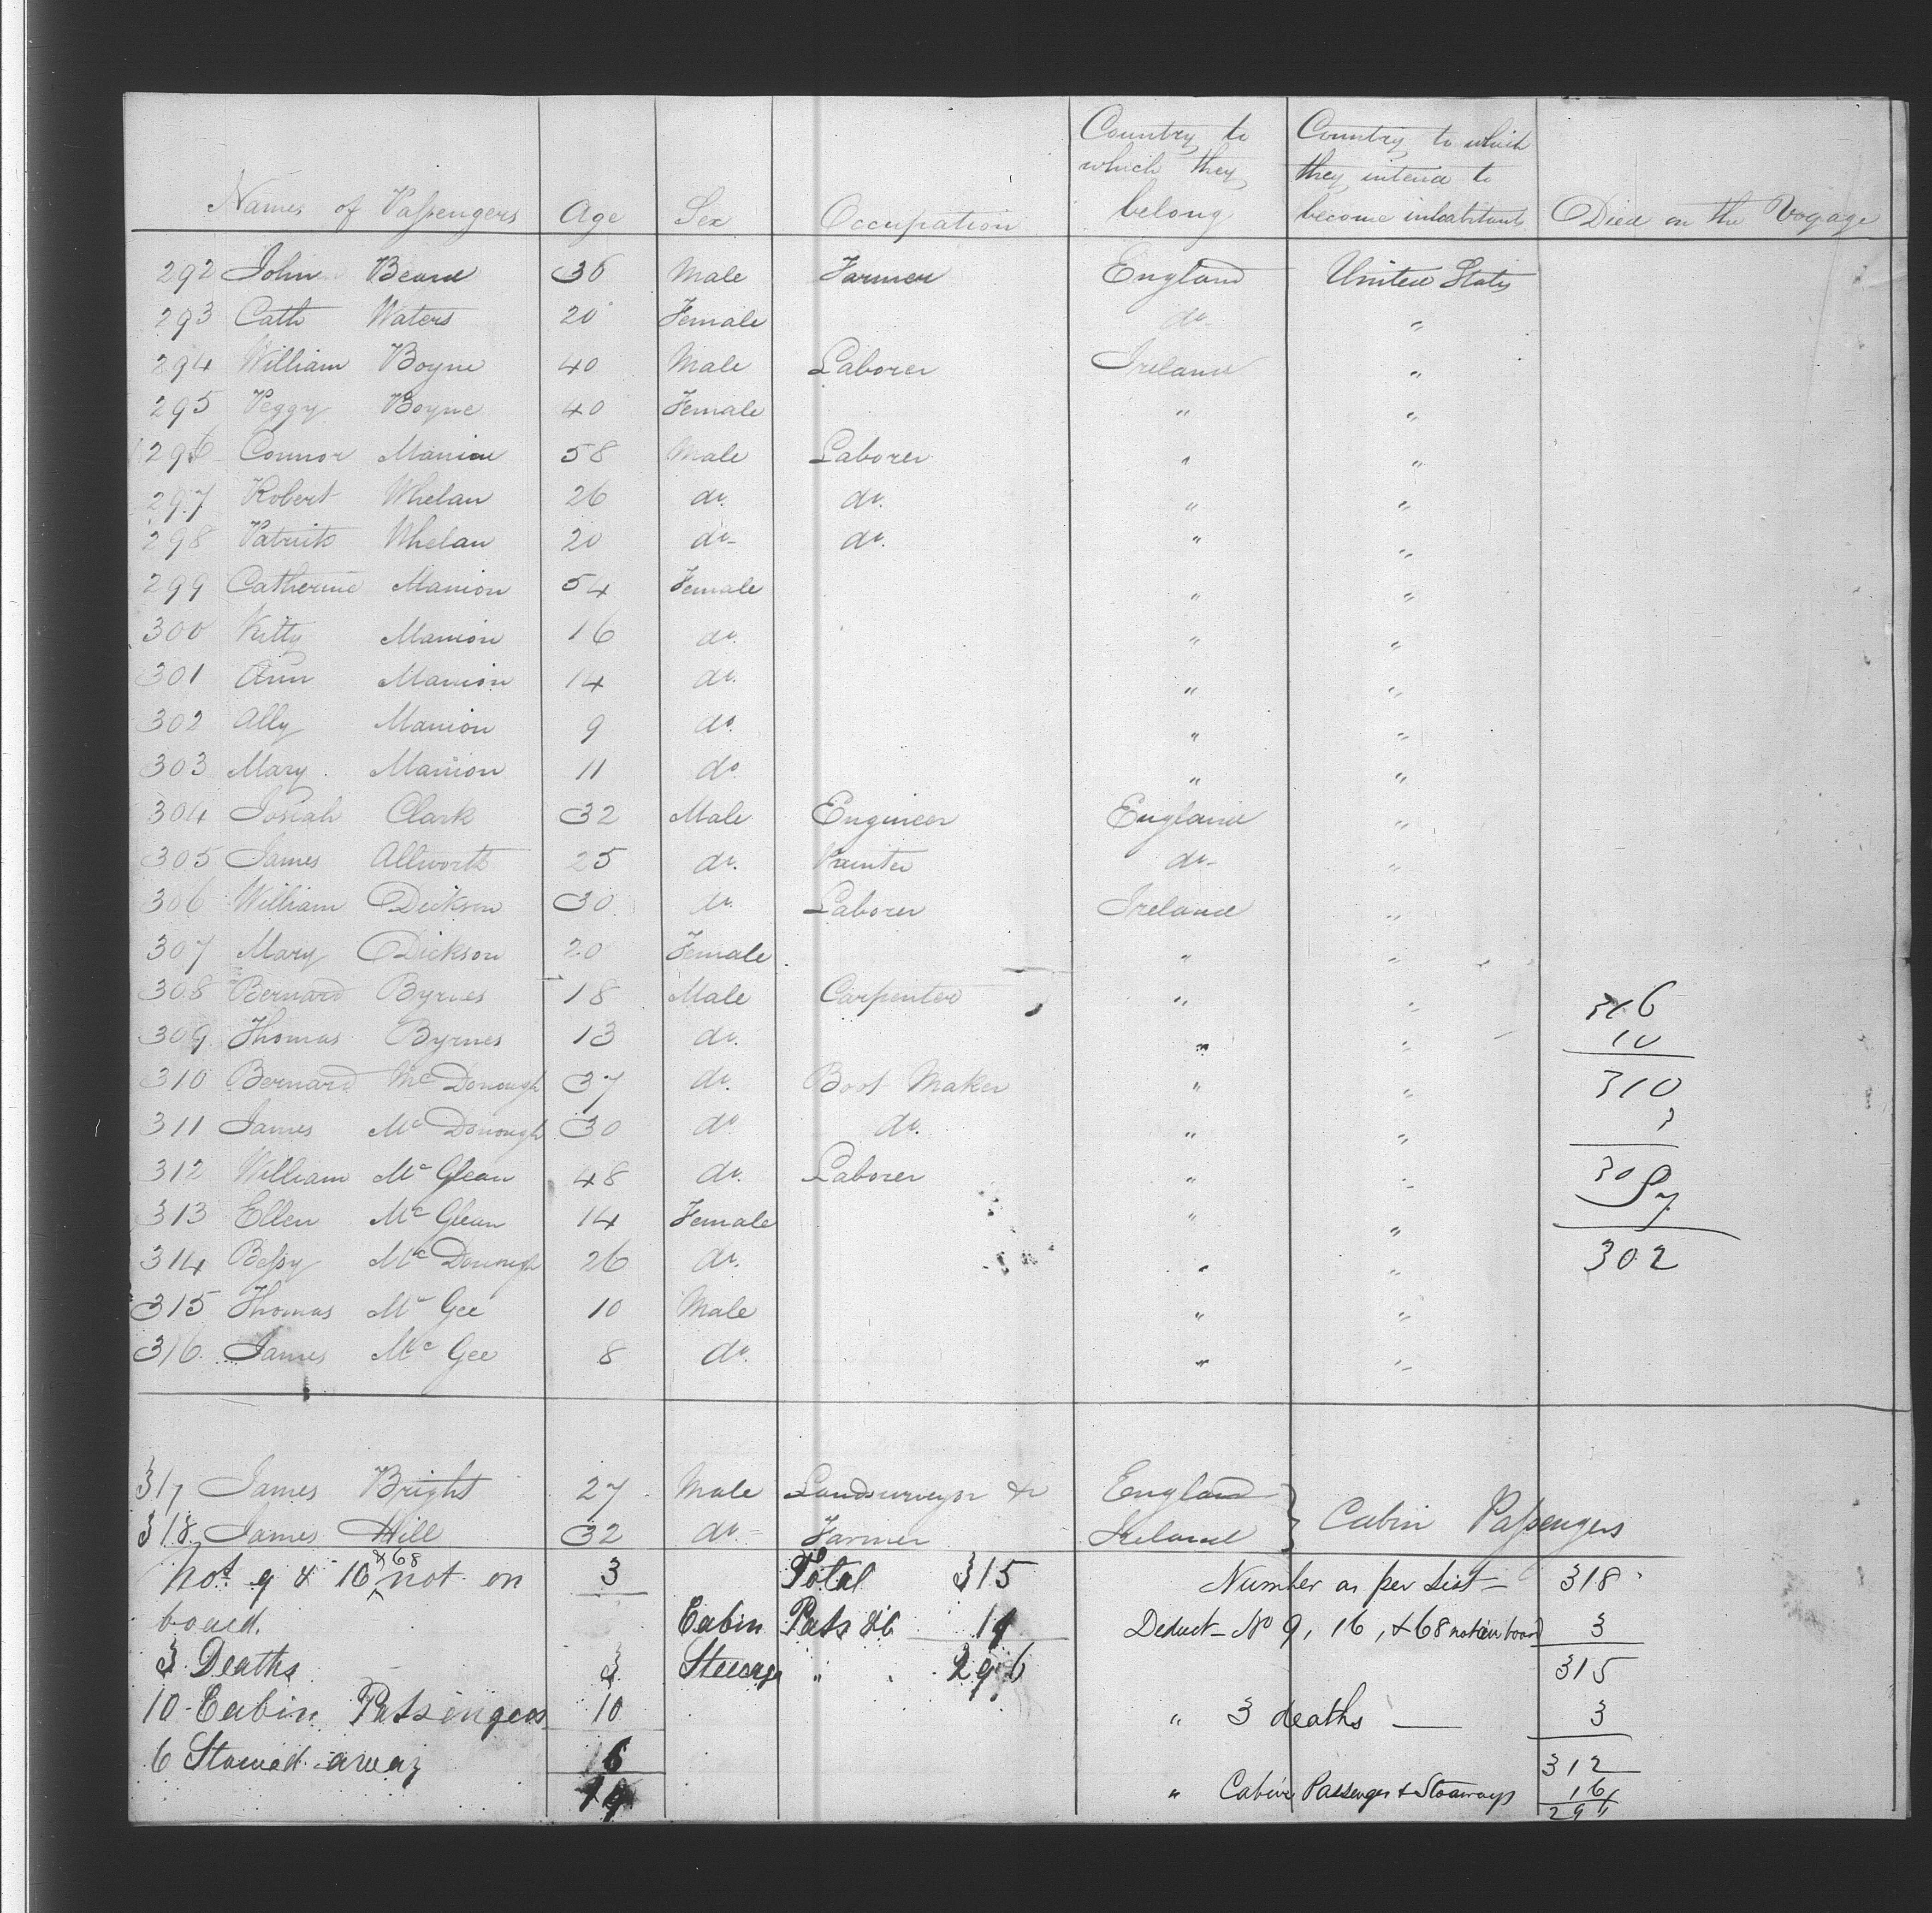 Names of Passengers Age Sex Occupation Country to which they belong Country to which they intend to become inhabitants Died on the Voyage
292 John Beard 36 Male Farmer England United States
293 Cath Waters 20 Female do "
294 William Boyne 40 Male Laborer Ireland "
295 Peggy Boyne 40 Female " "
296 Connor Manion 58 Male Laborer " "
297 Robert Whelan 26 do. do. " "
298 Patrick Whelan 20 do do. " "
299 Catherine Manion 54 Female " "
300 Kitty Manion 16 do. " "
301 Ann Manion 14 do. " "
302 Ally Manion 9 do. " "
303 Mary Manion 11 do " "
304 Josiah Clark 32 Male Engineer England "
305 James Allworth 25 do. Painter do "
306 William Dickson 30 do Laborer Ireland "
307 Mary Dickson 20 Female " "
308 Bernard Byrnes 18 Male Carpenter " "
309 Thomas Byrnes 13 do. " "
310 Bernard McDonough 37 do. Boot Maker " "
311 James McDonough 30 do do. " "
312 William McGlean 48 do. Laborer " "
313 Ellen McGlean 14 Female " "
314 Bessy McDonough 26 do. " "
315 Thomas McGee 10 Male " "
316 James McGee 8 do. " "
316
10
310
3
302
317 James Bright 27 Male Landsurveyor & England
318 James Hill 32 do Farmer Ireland } Cabin Passengers
Not 9 & 16 & 68 not on 3 Total 315 Number as per List 318
board. Cabin Pass &c 19 Deduct No 9, 16, & 68 not on board 3
3 Deaths 3 Steerage " 296 315
10 Cabin Passengers 10 " 3 deaths 3
6 Stowed away 6 312
19 " Cabin Passenger & Stoaways 16